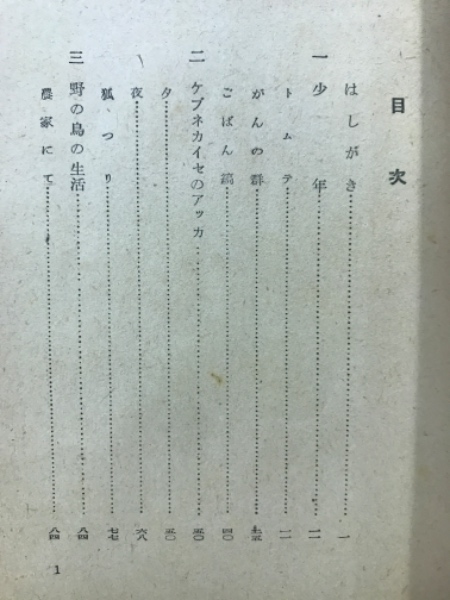 目次
はしがき 一
一 少年 一一
トムテ 一一
がんの群
ごばん縞 四〇
二 ケブネカイセのアッカ 五〇
夕 五〇
夜 六八
狐つり 七七
三 野の鳥の生活 八四
農家にて 八四
1